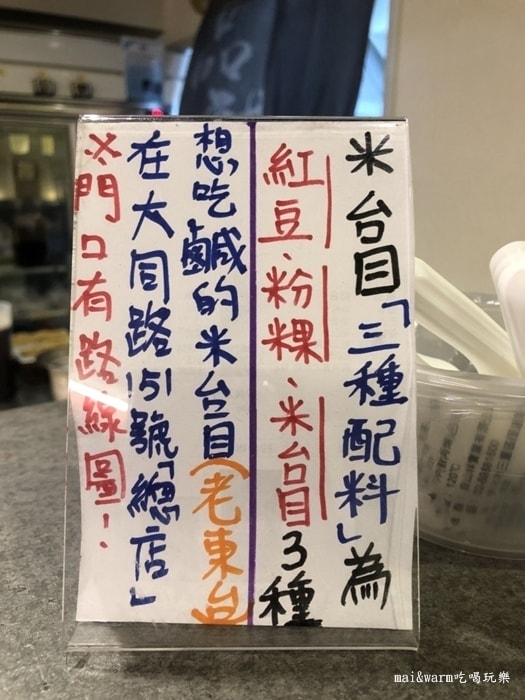 米台目「三種配料」為
紅豆、粉粿、米台目3種
想吃鹹的米台目(老東台)
在大同路151號「總店」
※門口有路線圖!
mai&warm吃喝玩樂